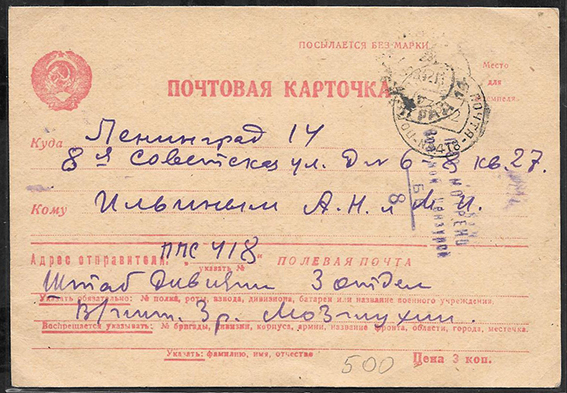 ПОСЫЛАЕТСЯ БЕЗ МАРКИ
Место
для
ПОЧТОВАЯ КАРТОЧКА
Куда Ленинград 14
8я Советская ул. Д№ 6/8 кв. 27.
Кому Ильиным А.Н. и М.И.
ПРОСМОТРЕНО
Военной Цензурой
Адрес отправителя: ППС 418
указать № ПОЛЕВАЯ ПОЧТА
Штаб Дивизии 3 отдел
Указать обязательно: № полка, роты, взвода, дивизиона, батареи или название военного учреждения.
В/инт. 3 р. Мозжухин.
Воспрещается указывать: № бригады, дивизии, корпуса, армии, название фронта, области, города, местечка.
Указать: фамилию, имя, отчество
500
Цена 3 коп.